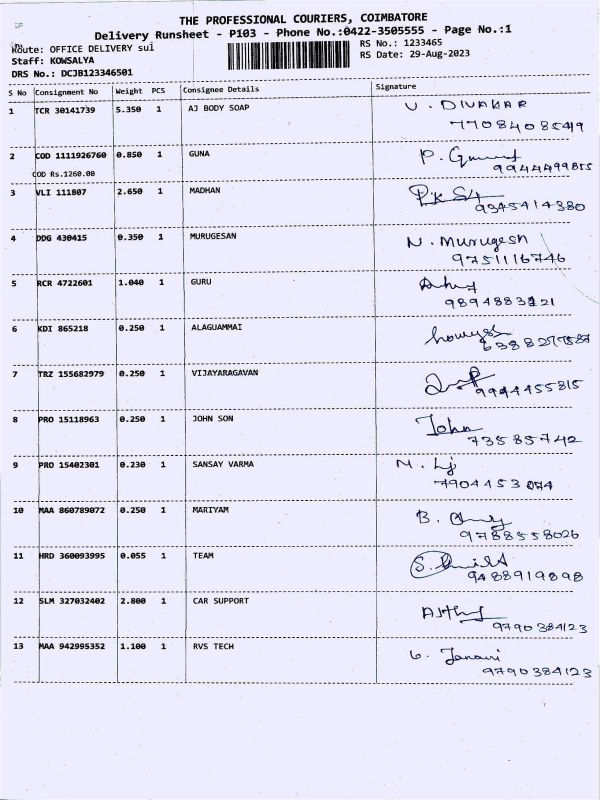 THE PROFESSIONAL COURIERS, COIMBATORE
Delivery Runsheet - P103 - Phone No.:0422-3505555 - Page No.:1
Route: OFFICE DELIVERY sul
RS No.: 1233465
Staff: KOWSALYA
RS Date: 29-Aug-2023
DRS No.: DCJB123346501
S No Consignment No Weight PCS Consignee Details Signature
1 TCR 30141739 5.350 1 AJ BODY SOAP U. DIVAKAR
7708408549
2 COD 1111926760 0.850 1 GUNA P.
COD Rs.1260.00 9944499855
3 VLI 111807 2.650 1 MADHAN
9345414380
4 DDG 430415 0.350 1 MURUGESAN N. Murugesh
9751116746
5 RCR 4722601 1.040 1 GURU
6 KDI 865218 0.250 1 ALAGUAMMAI
7 TRZ 155682979 0.250 1 VIJAYARAGAVAN
9944455815
8 PRO 15118963 0.250 1 JOHN SON John
73585742
9 PRO 15402301 0.230 1 SANSAY VARMA M.
10 MAA 860789072 0.250 1 MARIYAM B.
9788558026
11 HRD 360093995 0.055 1 TEAM S.
9488919898
12 SLM 327032402 2.800 1 CAR SUPPORT
9790384123
13 MAA 942995352 1.100 1 RVS TECH Janani
9790384123